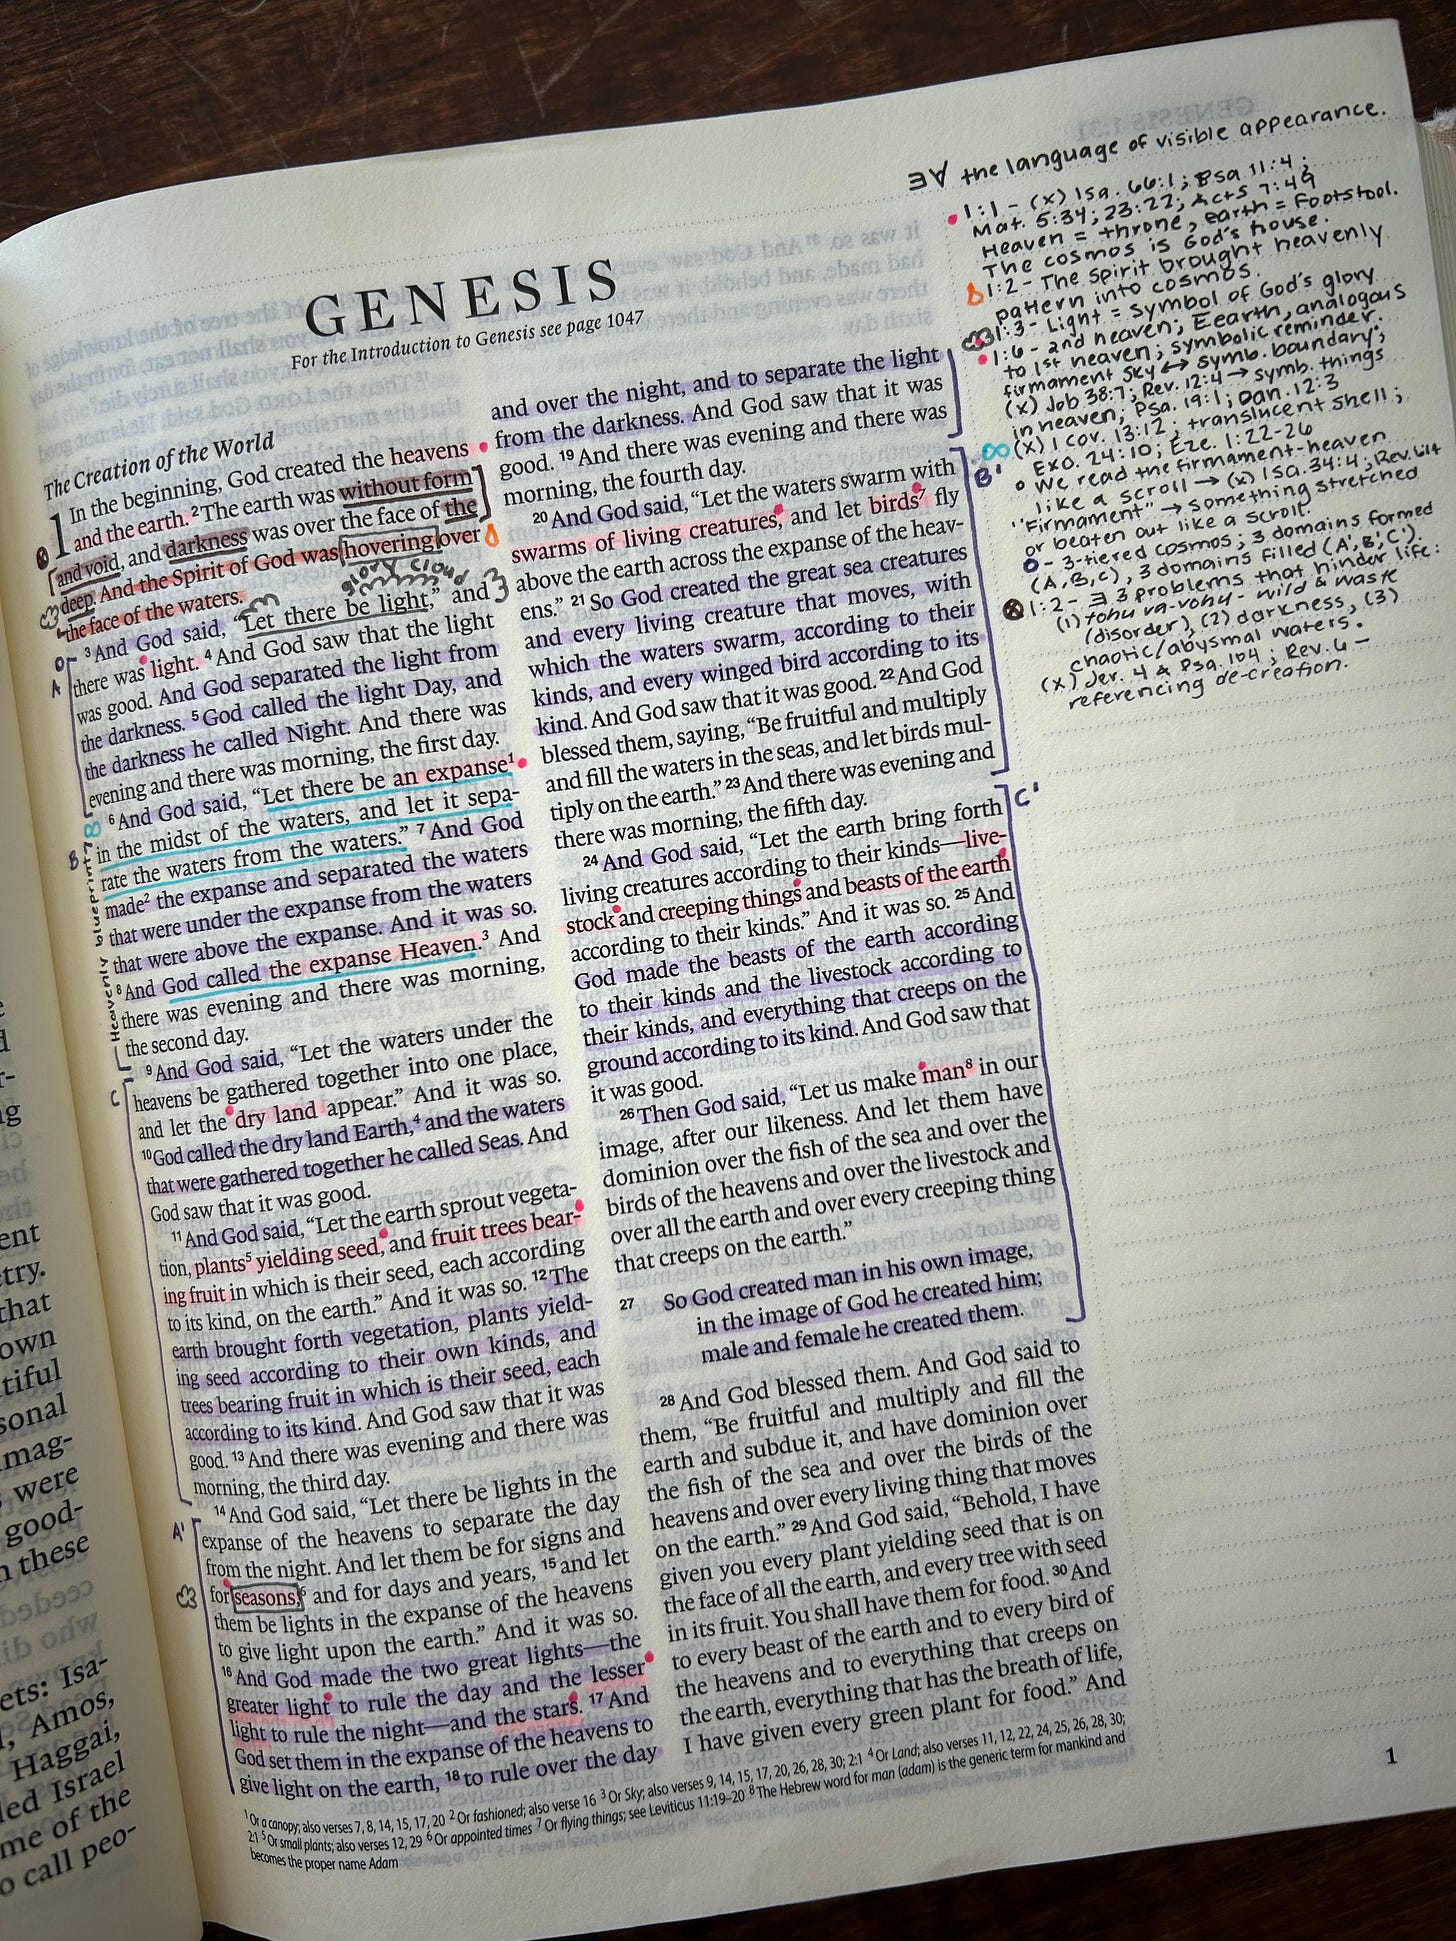 ∃∀ the language of visible appearance.
GENESIS
For the Introduction to Genesis see page 1047
The Creation of the World
1 In the beginning, God created the heavens
and the earth. 2 The earth was without form
and void, and darkness was over the face of the
deep. And the Spirit of God was hovering over
the face of the waters.
glory cloud
3 And God said, “Let there be light,” and
there was light. 4 And God saw that the light
was good. And God separated the light from
the darkness. 5 God called the light Day, and
the darkness he called Night. And there was
evening and there was morning, the first day.
6 And God said, “Let there be an expanse1
in the midst of the waters, and let it sepa-
rate the waters from the waters.” 7 And God
made2 the expanse and separated the waters
that were under the expanse from the waters
that were above the expanse. And it was so.
8 And God called the expanse Heaven.3 And
there was evening and there was morning,
the second day.
9 And God said, “Let the waters under the
heavens be gathered together into one place,
and let the dry land appear.” And it was so.
10 God called the dry land Earth,4 and the waters
that were gathered together he called Seas. And
God saw that it was good.
11 And God said, “Let the earth sprout vegeta-
tion, plants5 yielding seed, and fruit trees bear-
ing fruit in which is their seed, each according
to its kind, on the earth.” And it was so. 12 The
earth brought forth vegetation, plants yield-
ing seed according to their own kinds, and
trees bearing fruit in which is their seed, each
according to its kind. And God saw that it was
good. 13 And there was evening and there was
morning, the third day.
14 And God said, “Let there be lights in the
expanse of the heavens to separate the day
from the night. And let them be for signs and
for seasons,6 and for days and years, 15 and let
them be lights in the expanse of the heavens
to give light upon the earth.” And it was so.
16 And God made the two great lights—the
greater light to rule the day and the lesser
light to rule the night—and the stars. 17 And
God set them in the expanse of the heavens to
give light on the earth, 18 to rule over the day
A
B
Heavenly blueprint?
C
A'
and over the night, and to separate the light
from the darkness. And God saw that it was
good. 19 And there was evening and there was
morning, the fourth day.
20 And God said, “Let the waters swarm with
swarms of living creatures, and let birds7 fly
above the earth across the expanse of the heav-
ens.” 21 So God created the great sea creatures
and every living creature that moves, with
which the waters swarm, according to their
kinds, and every winged bird according to its
kind. And God saw that it was good. 22 And God
blessed them, saying, “Be fruitful and multiply
and fill the waters in the seas, and let birds mul-
tiply on the earth.” 23 And there was evening and
there was morning, the fifth day.
24 And God said, “Let the earth bring forth
living creatures according to their kinds—live-
stock and creeping things and beasts of the earth
according to their kinds.” And it was so. 25 And
God made the beasts of the earth according
to their kinds and the livestock according to
their kinds, and everything that creeps on the
ground according to its kind. And God saw that
it was good.
26 Then God said, “Let us make man8 in our
image, after our likeness. And let them have
dominion over the fish of the sea and over the
birds of the heavens and over the livestock and
over all the earth and over every creeping thing
that creeps on the earth.”
27 So God created man in his own image,
in the image of God he created him;
male and female he created them.
28 And God blessed them. And God said to
them, “Be fruitful and multiply and fill the
earth and subdue it, and have dominion over
the fish of the sea and over the birds of the
heavens and over every living thing that moves
on the earth.” 29 And God said, “Behold, I have
given you every plant yielding seed that is on
the face of all the earth, and every tree with seed
in its fruit. You shall have them for food. 30 And
to every beast of the earth and to every bird of
the heavens and to everything that creeps on
the earth, everything that has the breath of life,
I have given every green plant for food.” And
B'
C'
1:1 - (x) Isa. 66:1; Psa 11:4;
Mat. 5:34; 23:22; Acts 7:49
Heaven = throne, earth = footstool.
The cosmos is God's house.
1:2 - The spirit brought heavenly
pattern into cosmos.
1:3 - Light = symbol of God's glory
1:6 - 2nd heaven; Eearth, analogous
to 1st heaven; symbolic reminder.
firmament sky ↔ symb. boundary;
(x) Job 38:7; Rev. 12:4 → symb. things
in heaven; Psa. 19:1; Dan. 12:3
∞ (x) 1 Cor. 13:12; translucent shell;
Exo. 24:10; Eze. 1:22-26
o We read the firmament-heaven
like a scroll → (x) Isa. 34:4; Rev. 6:14
"Firmament" → something stretched
or beaten out like a scroll.
o - 3-tiered cosmos; 3 domains formed
(A, B, C), 3 domains filled (A', B', C').
1:2 - ∃ 3 problems that hinder life:
(1) tohu va-vohu - wild & waste
(disorder), (2) darkness, (3)
chaotic/abysmal waters.
(x) Jer. 4 & Psa. 104; Rev. 6 -
referencing de-creation.
1 Or a canopy; also verses 7, 8, 14, 15, 17, 20 2 Or fashioned; also verse 16 3 Or Sky; also verses 9, 14, 15, 17, 20, 26, 28, 30; 2:1 4 Or Land; also verses 11, 12, 22, 24, 25, 26, 28, 30;
2:1 5 Or small plants; also verses 12, 29 6 Or appointed times 7 Or flying things; see Leviticus 11:19–20 8 The Hebrew word for man (adam) is the generic term for mankind and
becomes the proper name Adam
1
ent
etry.
that
own
tiful
sonal
mag-
were
good-
n these
ets: Isa-
l, Amos,
Haggai,
led Israel
me of the
o call peo-